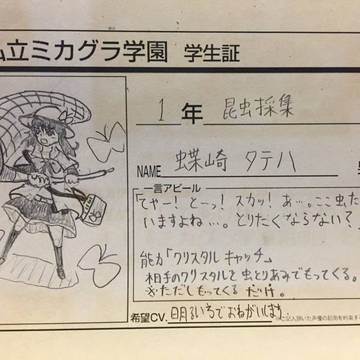 私立ミカグラ学園 学生証
1年 昆虫採集
NAME 蝶崎 タテハ
一言アピール
「てやー! とーっ! スカッ! あ…。ここ虫た
いますよね…。とりたくならない?
能力「クリスタル キャッチ」
相手のクリスタルを虫とりあみでもってくる。
※ただしもってくるだけ。
希望CV. 明るいちでおねがいします。